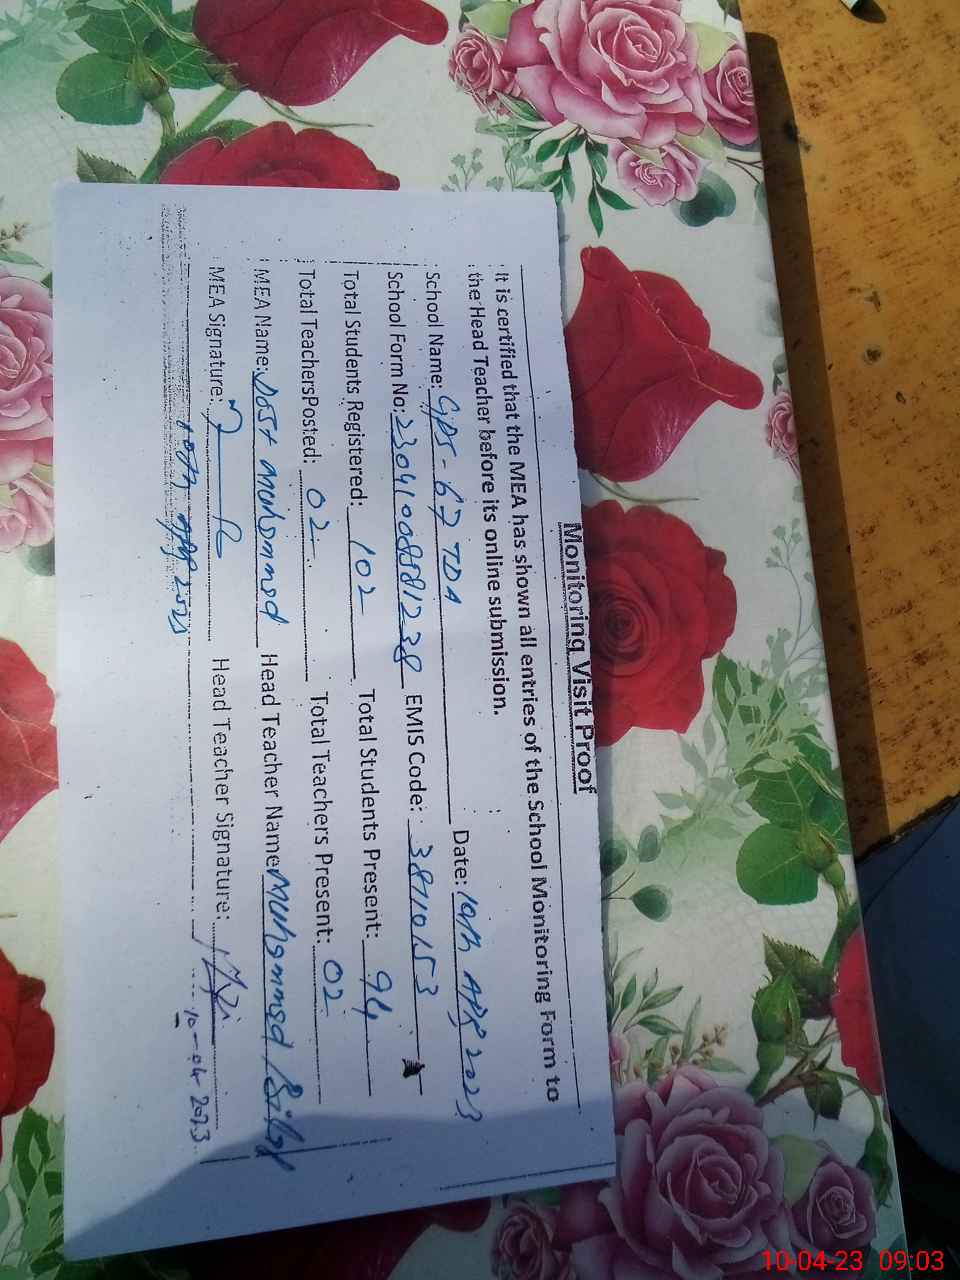 Monitoring Visit Proof
It is certified that the MEA has shown all entries of the School Monitoring Form to
the Head Teacher before its online submission.
School Name: GPS - 67 TDA Date: 10th APR 2023
School Form No: 2304100858812 38 EMIS Code: 38110153
Total Students Registered: 102 Total Students Present: 94
Total TeachersPosted: 02 Total Teachers Present: 02
MEA Name: Dost Muhammad Head Teacher Name Muhammad Bilal
MEA Signature: Head Teacher Signature:
10th APR 2023 10-04-2023
10-04-23 09:03